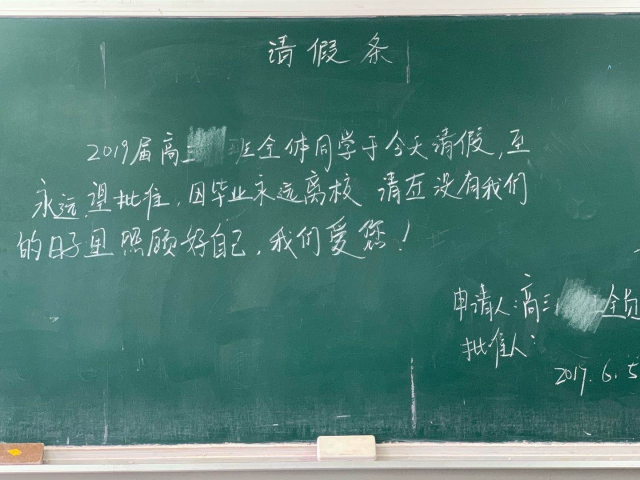 请假条
2019届高三班全体同学于今天请假,至
永远望批准,因毕业永远离校 请在没有我们
的日子里照顾好自己,我们爱您!
申请人:高三 全员
批准人:
2017.6.5